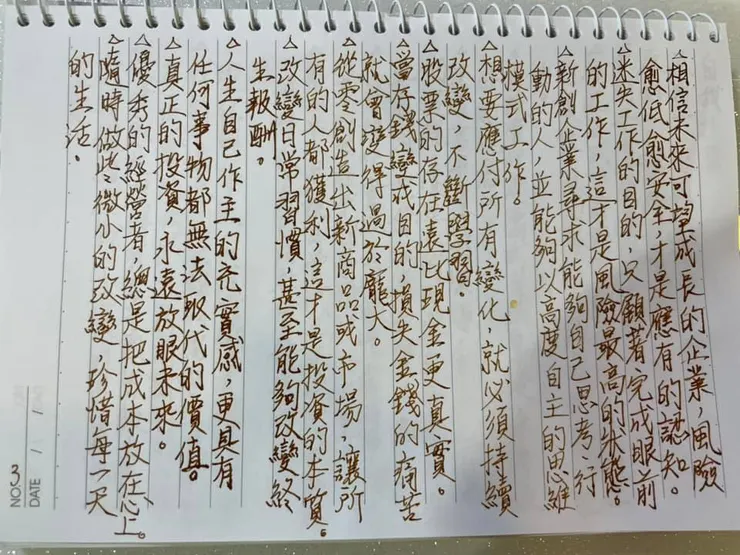 △相信未來可望成長的企業,風險
愈低愈安全才是應有的認知。
△迷失工作的目的,只顧著完成眼前
的工作,這才是風險最高的狀態。
△新創企業尋求能夠自己思考、行
動的人,並能夠以高度自主的思維
模式工作。
△想要應付所有變化,就必須持續
改變,不斷學習。
△股票的存在遠比現金更真實。
△當存錢變成目的,損失金錢的痛苦
就會變得過於龐大。
△從零創造出新商品或市場,讓所
有的人都獲利,這才是投資的本質。
△改變日常習慣,甚至能夠改變終
生報酬。
△人生自己作主的充實感,更具有
任何事物都無法取代的價值。
△真正的投資,永遠放眼未來。
△優秀的經營者,總是把成本放在心上。
△隨時做些微小的改變,珍惜每一天
的生活。
NO. 3
DATE / /